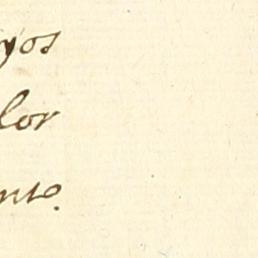 yos
lor
nto.